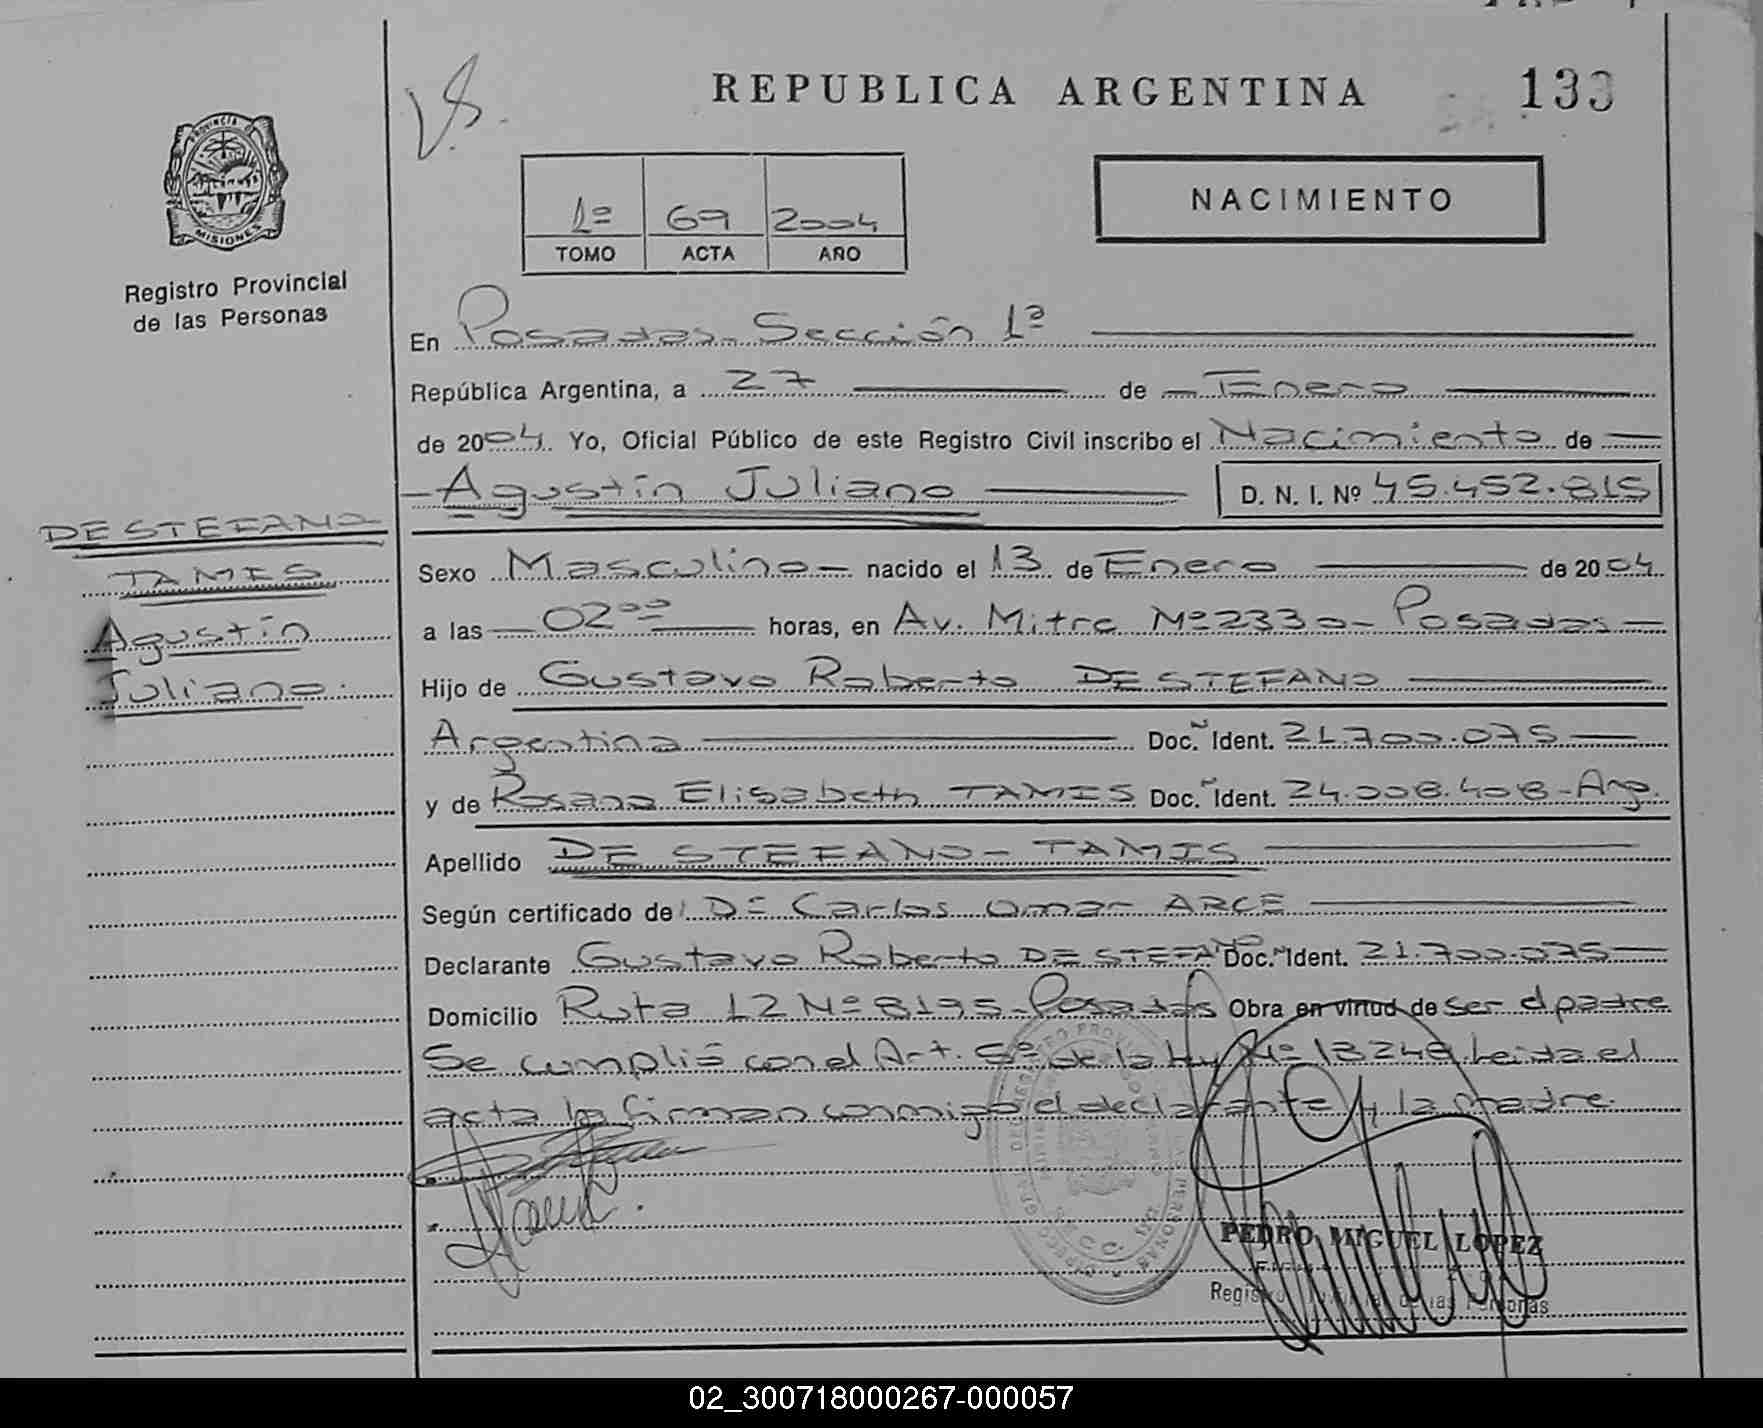 REPUBLICA ARGENTINA
133
PROVINCIA DE
MISIONES
Registro Provincial
de las Personas
1º 69 2004
TOMO ACTA AÑO
NACIMIENTO
En Posadas-Sección 1ª
República Argentina, a 27 de Enero
de 2004. Yo, Oficial Público de este Registro Civil inscribo el Nacimiento de
Agustín Juliano D. N. I. Nº 45.452.815
DE STEFANO
TAMIS
Agustín
Juliano.
Sexo Masculino nacido el 13 de Enero de 2004
a las 02ºº horas, en Av. Mitre Nº 2330- Posadas
Hijo de Gustavo Roberto DE STEFANO
Argentina Doc. Ident. 21.700.075
y de Rosana Elisabeth TAMIS Doc. Ident. 24.008.408-Arg.
Apellido DE STEFANO-TAMIS
Según certificado de Dr Carlos Omar ARCE
Declarante Gustavo Roberto DE STEFANO Doc. Ident. 21.700.075
Domicilio Ruta 12 Nº 8195-Posadas Obra en virtud de ser el padre
Se cumplió con el Art. 5º de la ley Nº 13249. Leida el
acta la firman conmigo el declarante y la madre.
PEDRO MIGUEL LOPEZ
Registro Provincial de las Personas
02_300718000267-000057